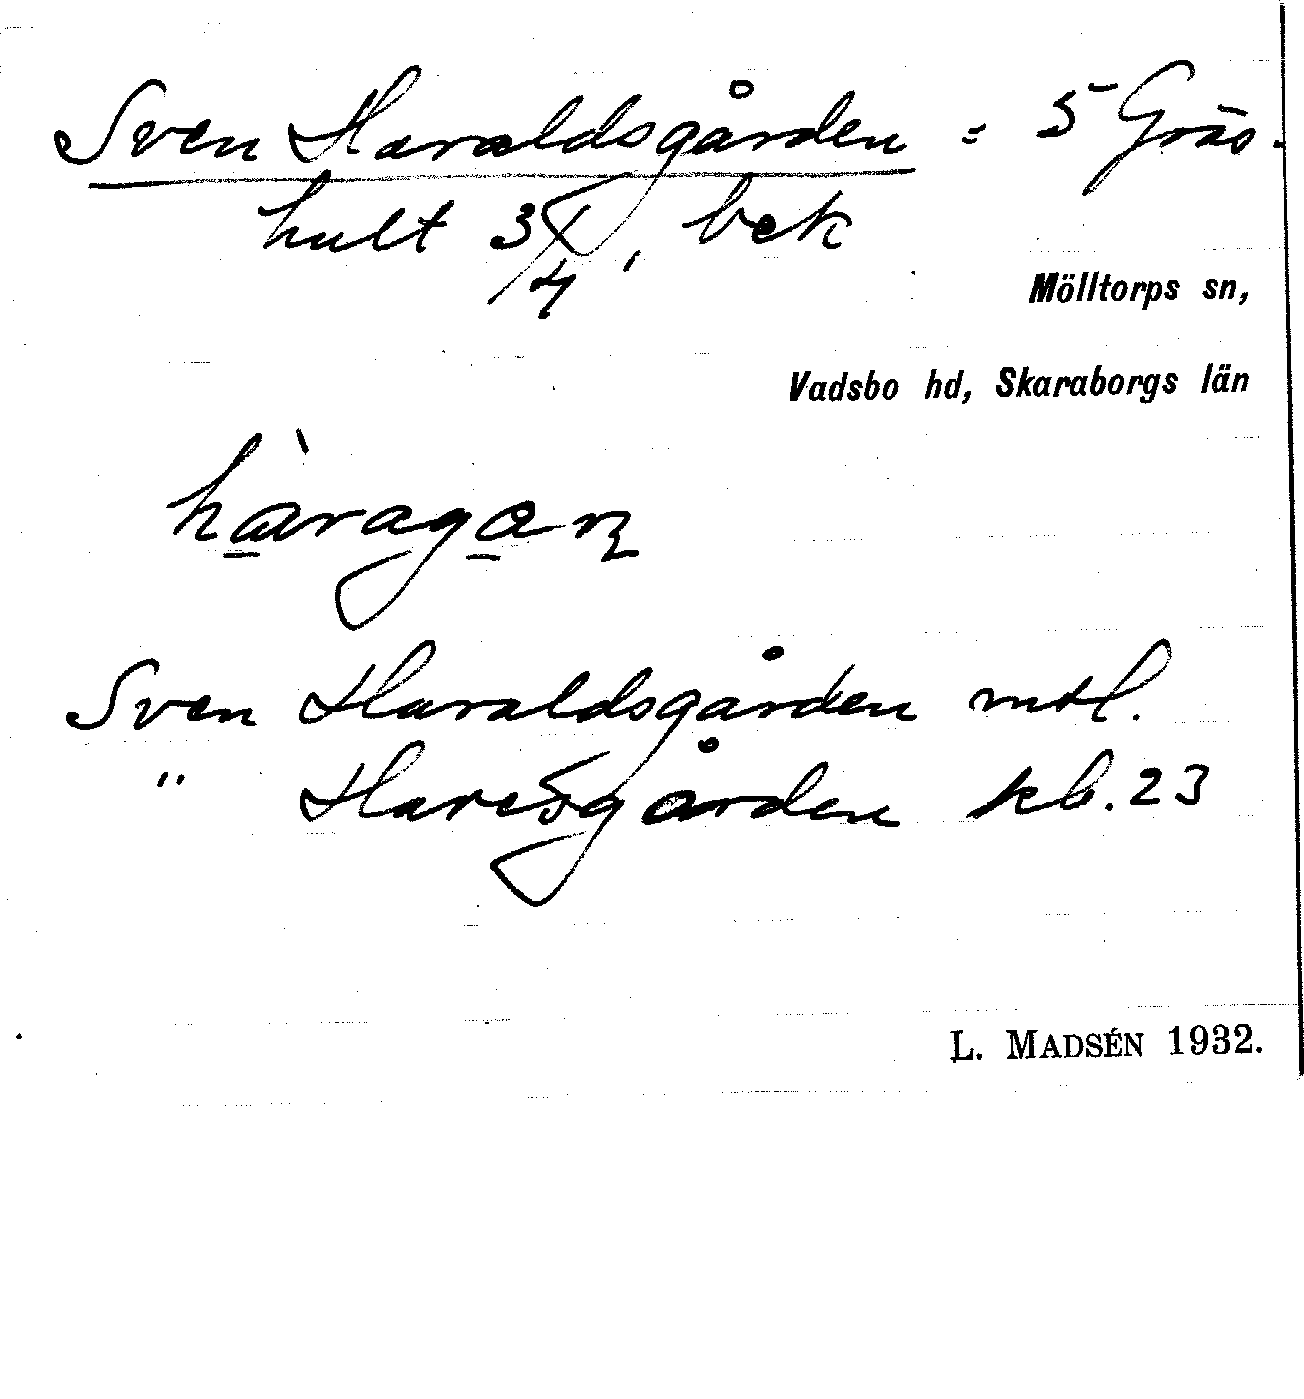 Sven Haraldsgården = 5 Gräs-
hult 3/4, bek
Mölltorps sn,
Vadsbo hd, Skaraborgs län
Sven Haraldsgården mtl.
" Haresgården kb. 23
L. MADSÉN 1932.